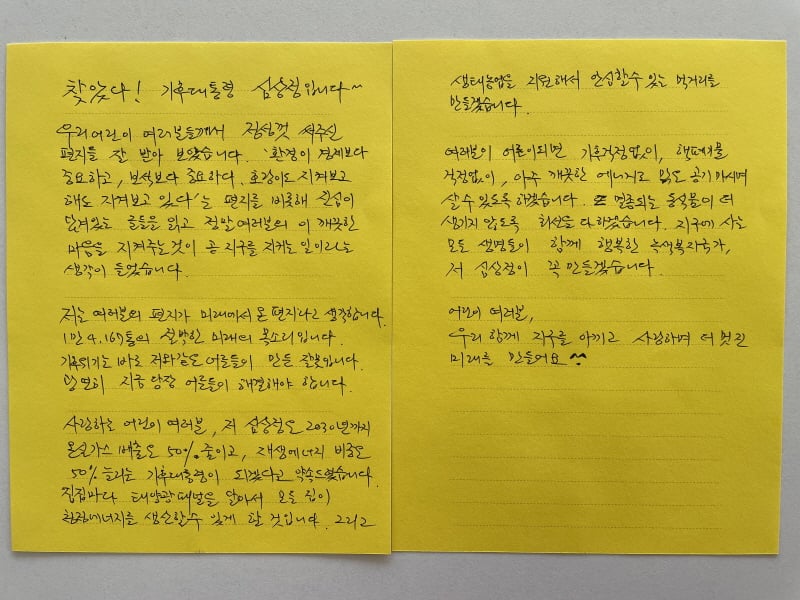 찾았다! 기후대통령 심상정입니다~
우리 어린이 여러분들께서 정성껏 써주신
편지를 잘 받아 보았습니다. '환경이 경제보다
중요하고, 보석보다 중요하다. 호랑이도 지켜보고
해도 지켜보고 있다'는 편지를 비롯해 진심이
담겨있는 글들을 읽고 정말 여러분의 이 깨끗한
마음을 지켜주는것이 곧 지구를 지키는 일이라는
생각이 들었습니다.
저는 여러분의 편지가 미래에서 온 편지라고 생각합니다.
1만 4,167통의 절박한 미래의 목소리입니다.
기후위기는 바로 저와같은 어른들이 만든 잘못입니다.
당연히 지금 당장 어른들이 해결해야 합니다.
사랑하는 어린이 여러분, 저 심상정은 2030년까지
온실가스 배출은 50% 줄이고, 재생에너지 비중은
50% 늘리는 기후대통령이 되겠다고 약속드렸습니다.
집집마다 태양광패널을 달아서 모든 집이
청정에너지를 생산할수 있게 할 것입니다. 그리고
생태농업을 지원해서 안심할수 있는 먹거리를
만들겠습니다.
여러분이 어른이되면 기후걱정없이, 핵폐기물
걱정없이, 아주 깨끗한 에너지로 맑은 공기 마시며
살 수 있도록 하겠습니다. 또 멸종되는 동식물이 더
생기지 않도록 최선을 다하겠습니다. 지구에 사는
모든 생명들이 함께 행복한 녹색복지국가,
저 심상정이 꼭 만들겠습니다.
어린이 여러분,
우리 함께 지구를 아끼고 사랑하며 더 멋진
미래를 만들어요^^